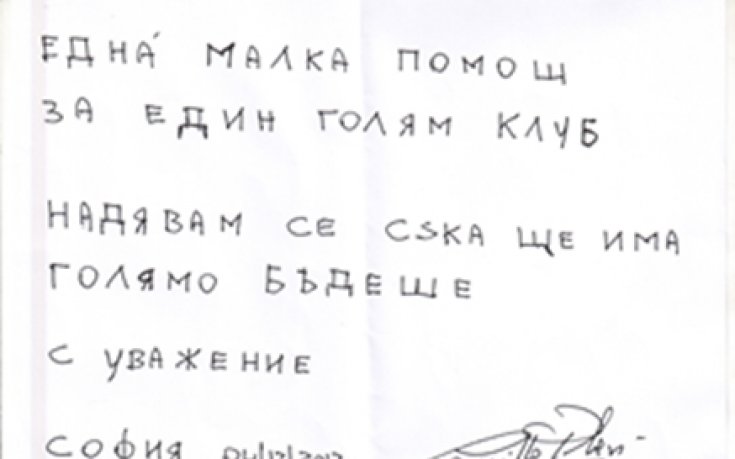 ЕДНА МАЛКА ПОМОЩ
ЗА ЕДИН ГОЛЯМ КЛУБ
НАДЯВАМ СЕ CSKA ЩЕ ИМА
ГОЛЯМО БЪДЕШЕ
С УВАЖЕНИЕ
СОФИЯ